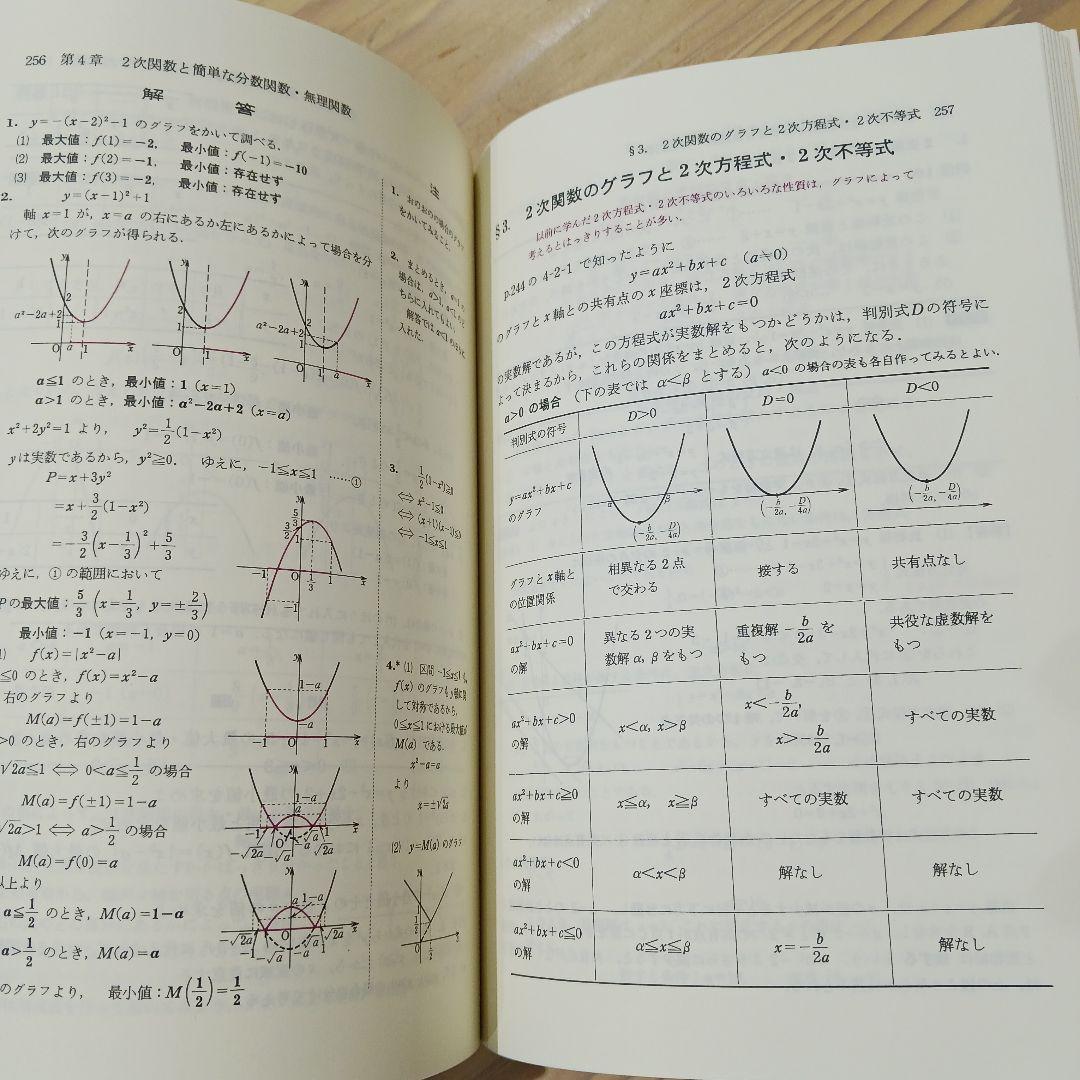 256 第4章 2次関数と簡単な分数関数・無理関数
解 答
1. y=-(x-2)²-1 のグラフをかいて調べる.
(1) 最大値:f(1)=-2, 最小値:f(-1)=-10
(2) 最大値:f(2)=-1, 最小値:存在せず
(3) 最大値:f(3)=-2, 最小値:存在せず
2. y=(x-1)²+1
軸 x=1 が, x=a の右にあるか左にあるかによって場合を分
けて, 次のグラフが得られる.
a≦1 のとき, 最小値:1 (x=1)
a>1 のとき, 最小値:a²-2a+2 (x=a)
x²+2y²=1 より, y²=1/2(1-x²)
yは実数であるから, y²≧0. ゆえに, -1≦x≦1 ……①
P=x+3y²
=x+3/2(1-x²)
=-3/2(x-1/3)²+5/3
ゆえに, ①の範囲において
Pの最大値:5/3 (x=1/3, y=±2/3)
最小値:-1 (x=-1, y=0)
f(x)=|x²-a|
≦0 のとき, f(x)=x²-a
右のグラフより
M(a)=f(±1)=1-a
>0 のとき, 右のグラフより
√2a≦1 ⇔ 0<a≦1/2 の場合
M(a)=f(±1)=1-a
√2a>1 ⇔ a>1/2 の場合
M(a)=f(0)=a
以上より
a≦1/2 のとき, M(a)=1-a
a>1/2 のとき, M(a)=a
のグラフより, 最小値:M(1/2)=1/2
注
1. おのおのの場合のグラフ
をかいてみること.
2. まとめるとき, a=1 の
場合は, a>1, a<1 のど
ちらに入れてもよい.
入れた.
3. 1/2(1-x²)≧0
⇔ x²-1≦0
⇔ (x+1)(x-1)≦0
⇔ -1≦x≦1
4.* (1) 区間 -1≦x≦1 で,
f(x) のグラフも y軸に関
して対称であるから,
0≦x≦1 における最大値が
M(a) である.
x²-a=a
より
x=±√2a
(2) y=M(a) のグラフ
§3. 2次関数のグラフと2次方程式・2次不等式 257
§3. 2次関数のグラフと2次方程式・2次不等式
以前に学んだ2次方程式・2次不等式のいろいろな性質は, グラフによって
考えるとはっきりすることが多い.
p.244 の 4-2-1 で知ったように
y=ax²+bx+c (a≠0)
のグラフと x 軸との共有点の x 座標は, 2次方程式
ax²+bx+c=0
の実数解であるが, この方程式が実数解をもつかどうかは, 判別式Dの符号に
よって決まるから, これらの関係をまとめると, 次のようになる.
a>0 の場合 (下の表では α<β とする) a<0 の場合の表も各自作ってみるとよい.
判別式の符号 D>0 D=0 D<0
y=ax²+bx+c のグラフ (-b/2a, -D/4a) (-b/2a, -D/4a) (-b/2a, -D/4a)
グラフと x軸との位置関係 相異なる2点で交わる 接する 共有点なし
ax²+bx+c=0 の解 異なる2つの実数解 α, β をもつ 重複解 -b/2a をもつ 共役な虚数解をもつ
ax²+bx+c>0 の解 x<α, x>β x<-b/2a, x>-b/2a すべての実数
ax²+bx+c≧0 の解 x≦α, x≧β すべての実数 すべての実数
ax²+bx+c<0 の解 α<x<β 解なし 解なし
ax²+bx+c≦0 の解 α≦x≦β x=-b/2a 解なし